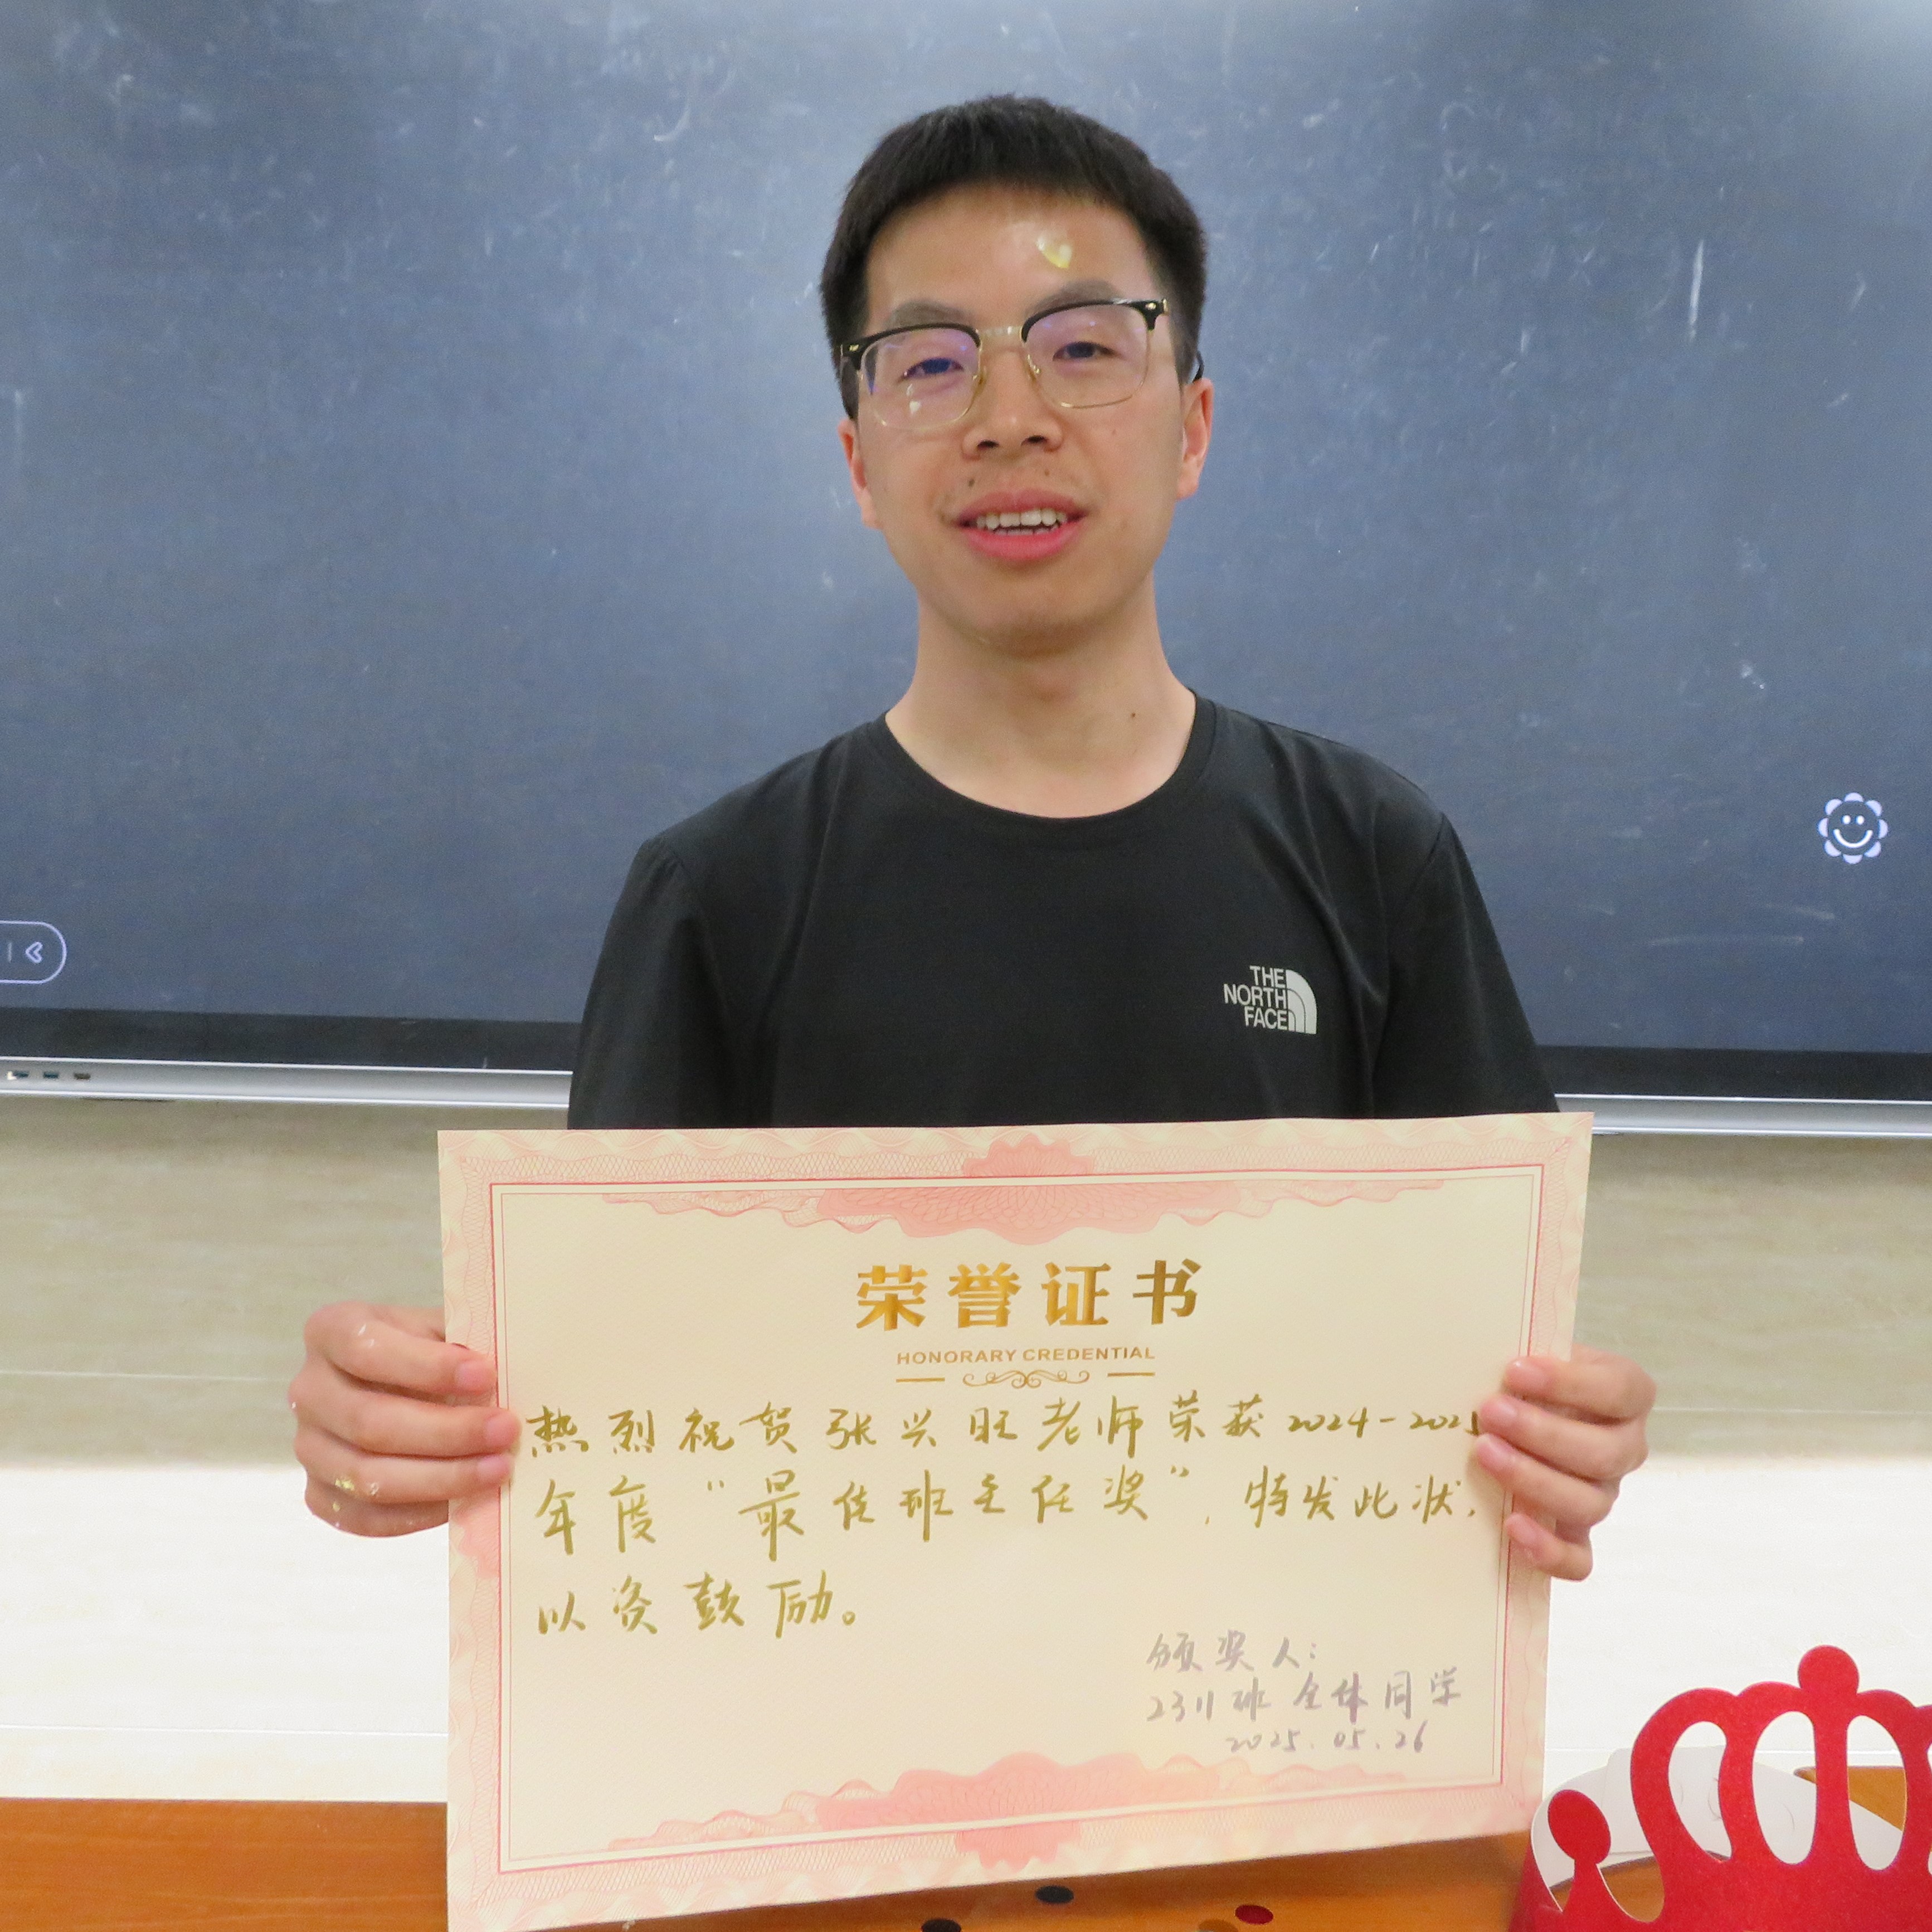 THE
NORTH
FACE
荣誉证书
HONORARY CREDENTIAL
热烈祝贺张兴旺老师荣获2024-2025
年度“最佳班主任奖”，特发此状，
以资鼓励。
颁奖人：
2311班全体同学
2025.05.26